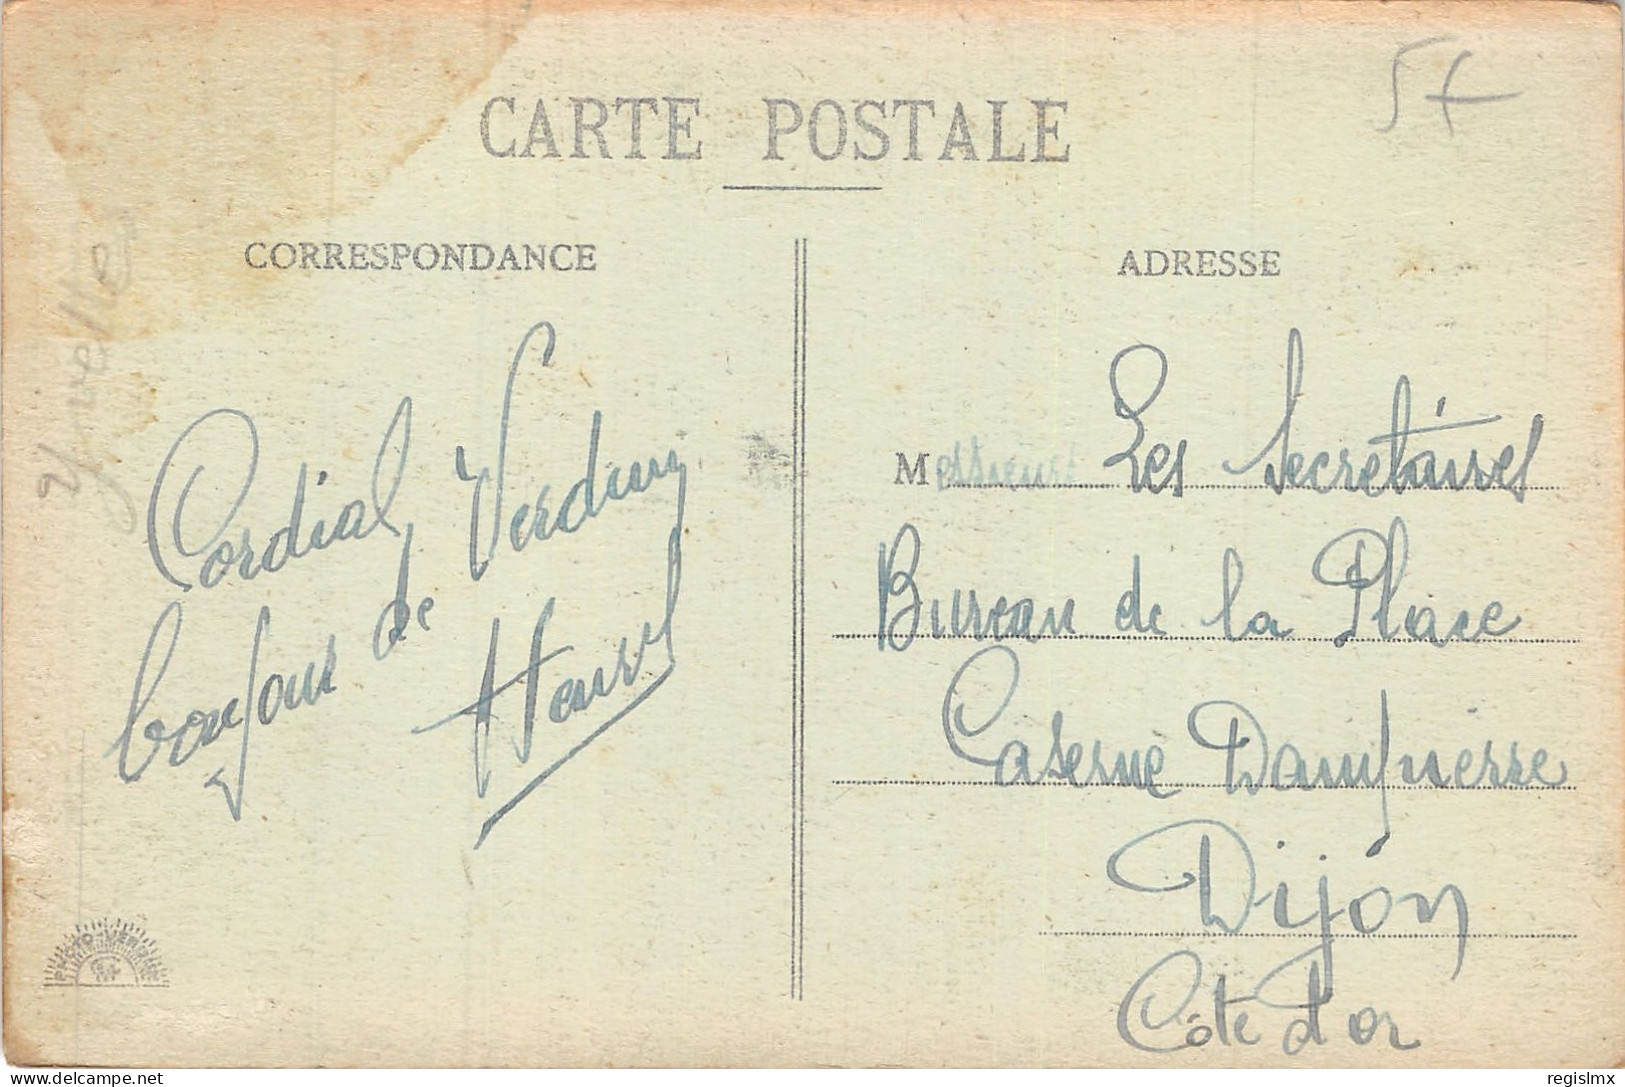 CARTE POSTALE
5f
CORRESPONDANCE
Cordial
bonjour de Verdun
Henri
ADRESSE
Messieurs Les Secrétaires
Bureau de la Place
Caserne Dampierre
Dijon
Côte d'or
delcampe.net
regislmx